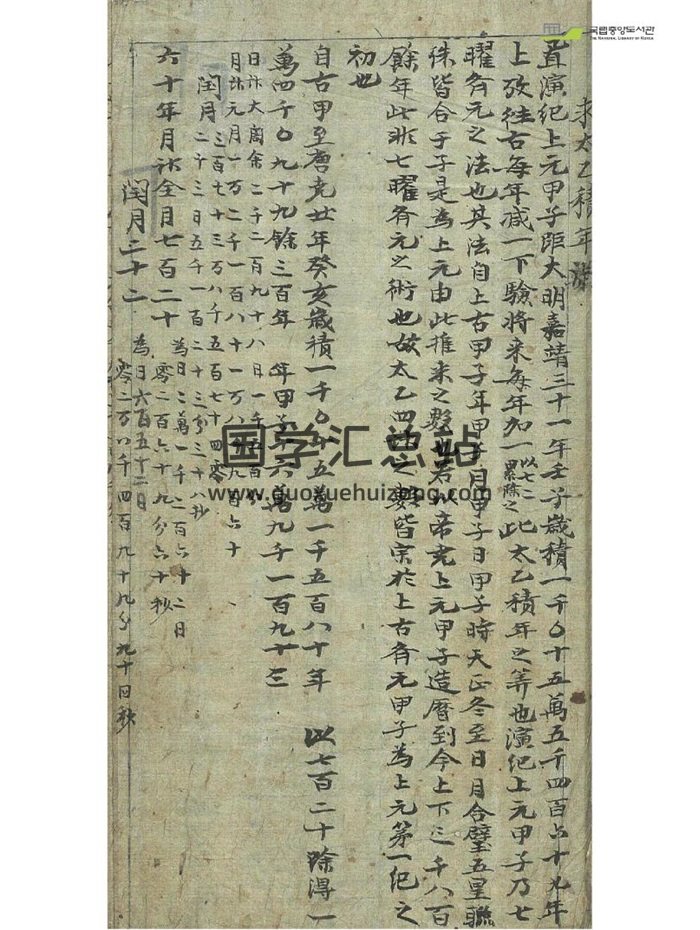 국립중앙도서관
THE NATIONAL LIBRARY OF KOREA
求太乙積年
置演紀上元甲子距大明嘉靖三十一年壬子歲積一千〇十五萬五千四百六十九年
上攷往古每年减一下驗將來每年加一以七二累除之此太乙積年之筭也演紀上元甲子乃七
曜齊元之法也其法自上古甲子年甲子月甲子日甲子時天正冬至日月合璧五星聯
珠皆合于子是為上元由此推來之數也若以帝堯上元甲子造曆到今上下三千八百
餘年此非七曜齊元之術也故太乙四之數皆宗於上古齊元甲子為上元第一紀之
初也
自古甲至唐堯廿年癸亥歲積一千〇十五萬一千五百八十年 以七百二十除淂一
萬四千〇九十九餘三百年 年甲子六萬九千一百九十三
日法大周余二千二百九十八日一千百
月法元月一万二千一百八十一万八九百六十
閏月三百七十三万八千五百七十四零
二千三日五千一百二十三分三十八秒
六十年月法全月七百二十 為日二萬一千二百六十二日
零二百六十九分六十秒
閏月二十二 為日六百五十二日
零二万八千四百九十九分九十四秒
国学汇总站
www.guoxuehuizong.com